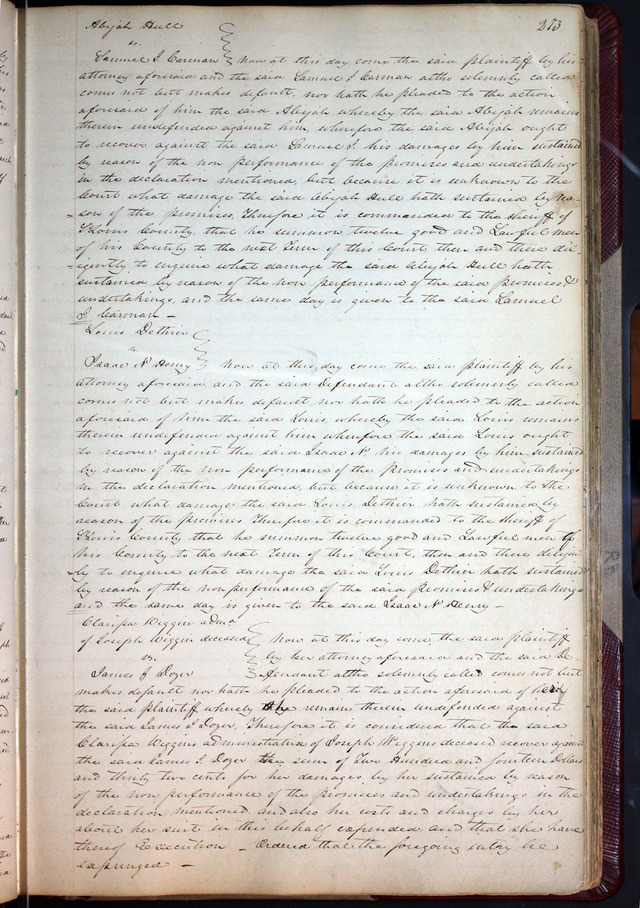 273
Abijah Hull
vs.
Samuel J. Carman Now at this day come the said plaintiff by his
attorney aforesaid and the said Samuel J Carman altho solemnly called
comes not but makes default, nor hath he pleaded to the action
aforesaid of him the said Abijah whereby the said Abijah remains
therein undefended against him, wherefore the said Abijah ought
to recover against the said Samuel J. his damages by him sustained
by reason of the non performance of the promises and undertakings
in the declaration mentioned, but because it is unknown to the
Court what damage the said Abijah Hull hath sustained by rea-
-son of the premises, Therefore it is commanded to the Sheriff of
St Louis County that he summon twelve good and Lawful men
of his County to the next Term of this Court then and there dil-
-igently to enquire what damage the said Abijah Hull hath
sustained by reason of the non performance of the said promises &
undertakings, and the same day is given to the said Samuel
J. Carman –
Louis Dethier
vs.
Isaac N Henry Now at this day come the said plaintiff by his
attorney aforesaid and the said defendant altho solemnly called
comes not but makes default, nor hath he pleaded to the action
aforesaid of him the said Louis, whereby the said Louis remains
therein undefended against him wherefore the said Louis ought
to recover against the said Isaac N his damages by him sustained
by reason of the non performance of the promises and undertakings
in the declaration mentioned, but because it is unknown to the
Court what damages the said Louis Dethier hath sustained by
reason of the premises Therefore it is commanded to the sheriff of
St Louis County that he summon twelve good and Lawful men of
his County to the next Term of this Court, then and there diligent
-ly to enquire what damage the said Louis Dethier hath sustained
by reason of the non performance of the said promises & undertakings
and the same day is given to the said Isaac N Henry –
Clarissa Wiggin admx
of Joseph Wiggin deceased Now at this day come the said plaintiff
vs. by her attorney aforesaid and the said De-
James J Dozer -fendant altho solemnly called comes not but
makes default nor hath he pleaded to the action aforesaid of her
the said plaintiff whereby she remains therein undefended against
the said James J Dozer. Therefore it is considered that the said
Clarissa Wiggins administratrix of Joseph Wiggins deceased recover against
the said James J Dozer the sum of Two Hundred and fourteen Dollars
and thirty two cents for her damages by her sustained by reason
of the non performance of the promises and undertakings in the
declaration mentioned and also her costs and charges by her
about her suit in this behalf expended and that she have
thereof Execution – Ordered that the foregoing entry be
expunged –